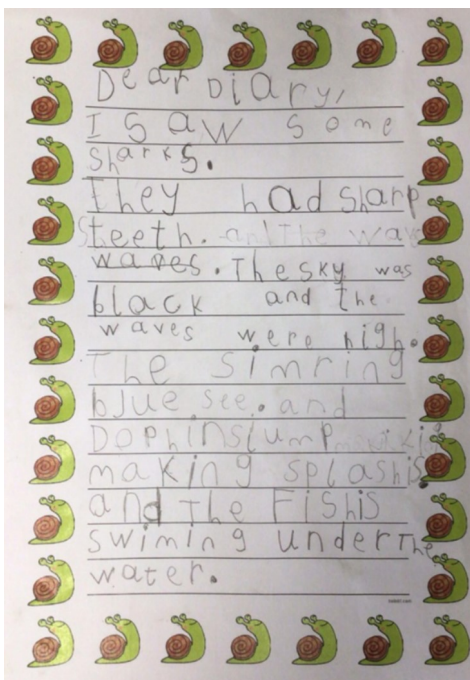 Dear Diary,
I saw some
sharks.
They had sharp
steeth. and The wav
waves. The sky was
black and the
waves were high.
The simring
blue see. and
Dophins Jump
making splashis.
and The Fishis
swiming under The
water.